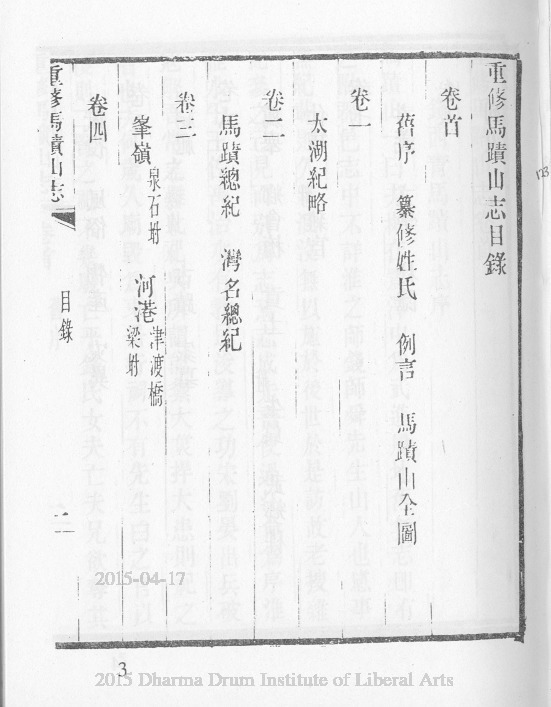 重修馬蹟山志目錄
卷首
舊序 纂修姓氏 例言 馬蹟山全圖
卷一
太湖紀略
卷二
馬蹟總紀 灣名總紀
卷三
峯嶺泉石坿 河港津渡橋梁坿
卷四
重修馬蹟山志 目錄 一
123
2015-04-17
3
2015 Dharma Drum Institute of Liberal Arts